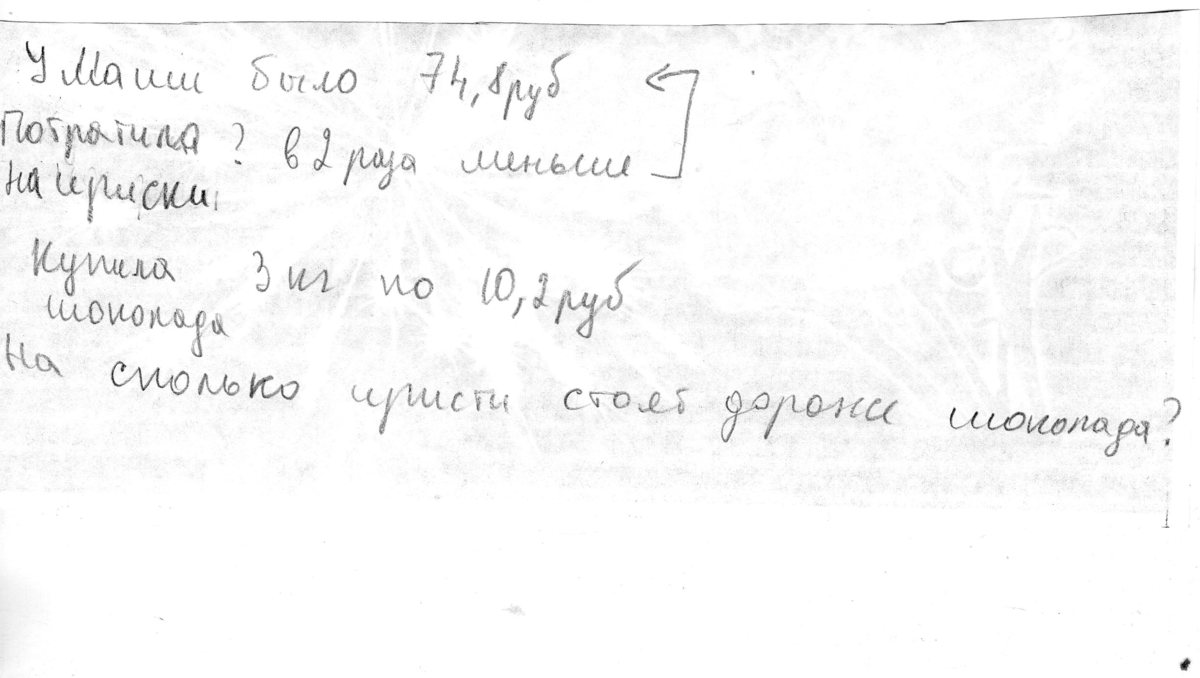 У Маши было 74,8 руб
Потратила ? в 2 раза меньше
на ириски
Купила 3 кг по 10,2 руб
шоколада
На сколько ириски стоят дороже шоколада?